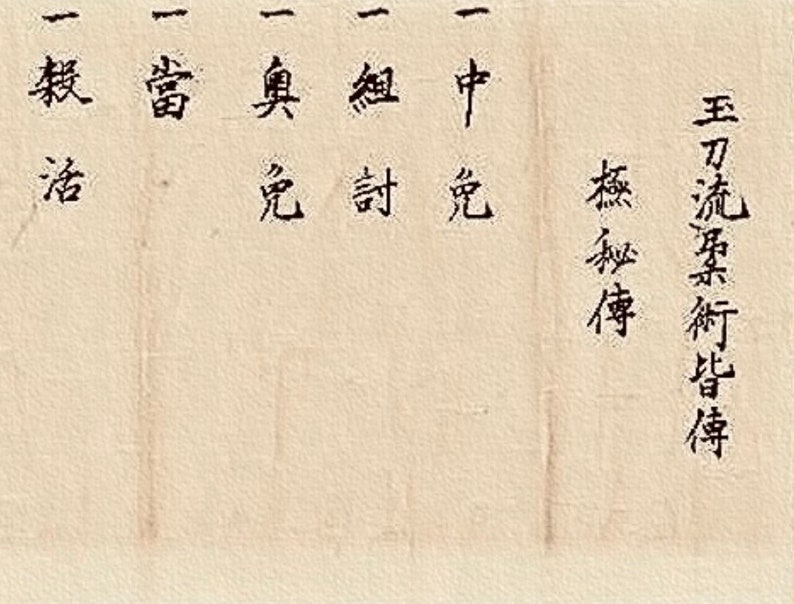 玉刀流柔術皆傳
極秘傳
一中免
一組討
一奥免
一當
一殺活